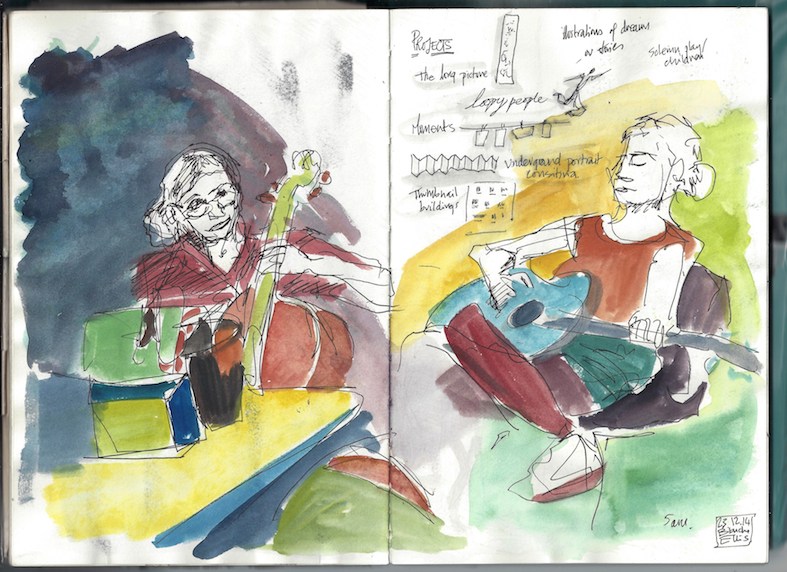 PROJECTS
the long picture
illustrations of dreams
or stories
solemn play/
children
loopy people
Moments
underground portrait
Thumbnail
buildings
Sam.
23.12.14
Blanche
Ellis